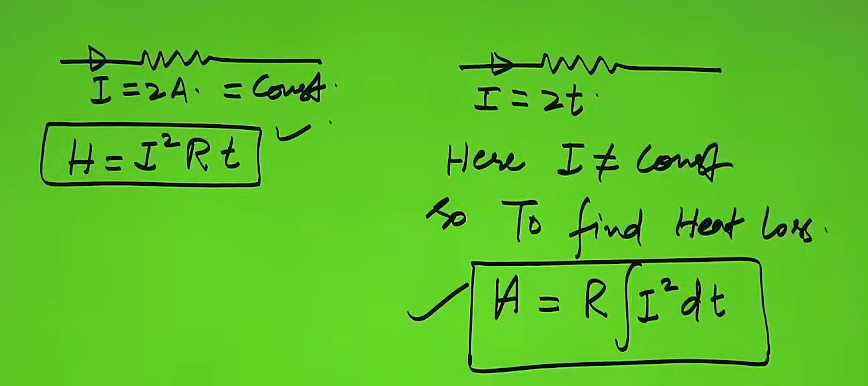 I = 2A. = Const.
H = I²Rt
I = 2t.
Here I ≠ const
So To find Heat Loss.
H = R∫I²dt